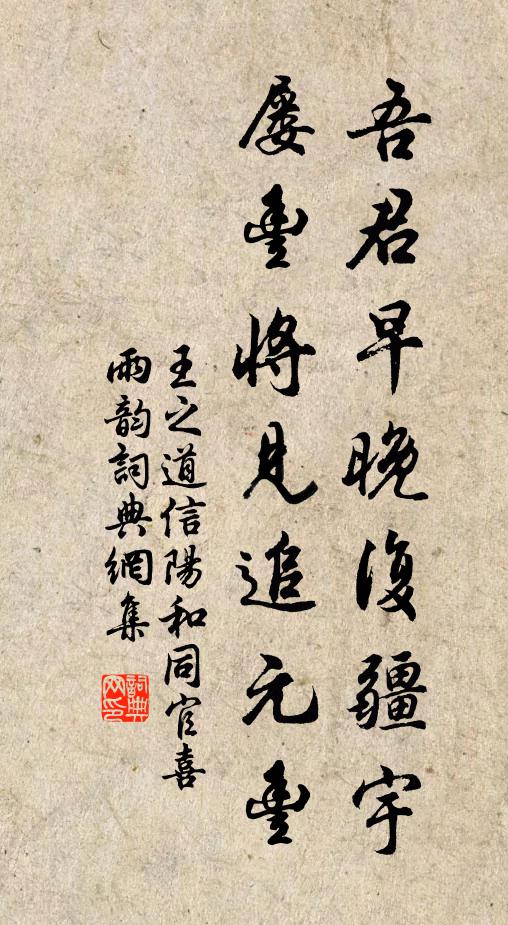 吾君早晚復疆宇
屢豐將見追元豐
王之道信陽和同官喜
雨韵詞典網集
詞典
网印